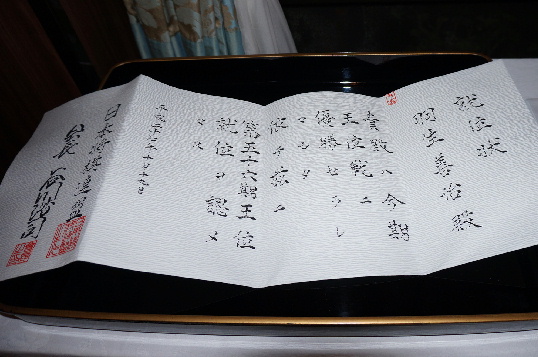 就位状
羽生善治殿
貴殿ハ今期
王位戦ニ
優勝セラレ
マシタ
茲ニ
第五十六期王位
就位ヲ認メ
マス
平成二十七年
日本将棋連盟
会長 谷川浩司